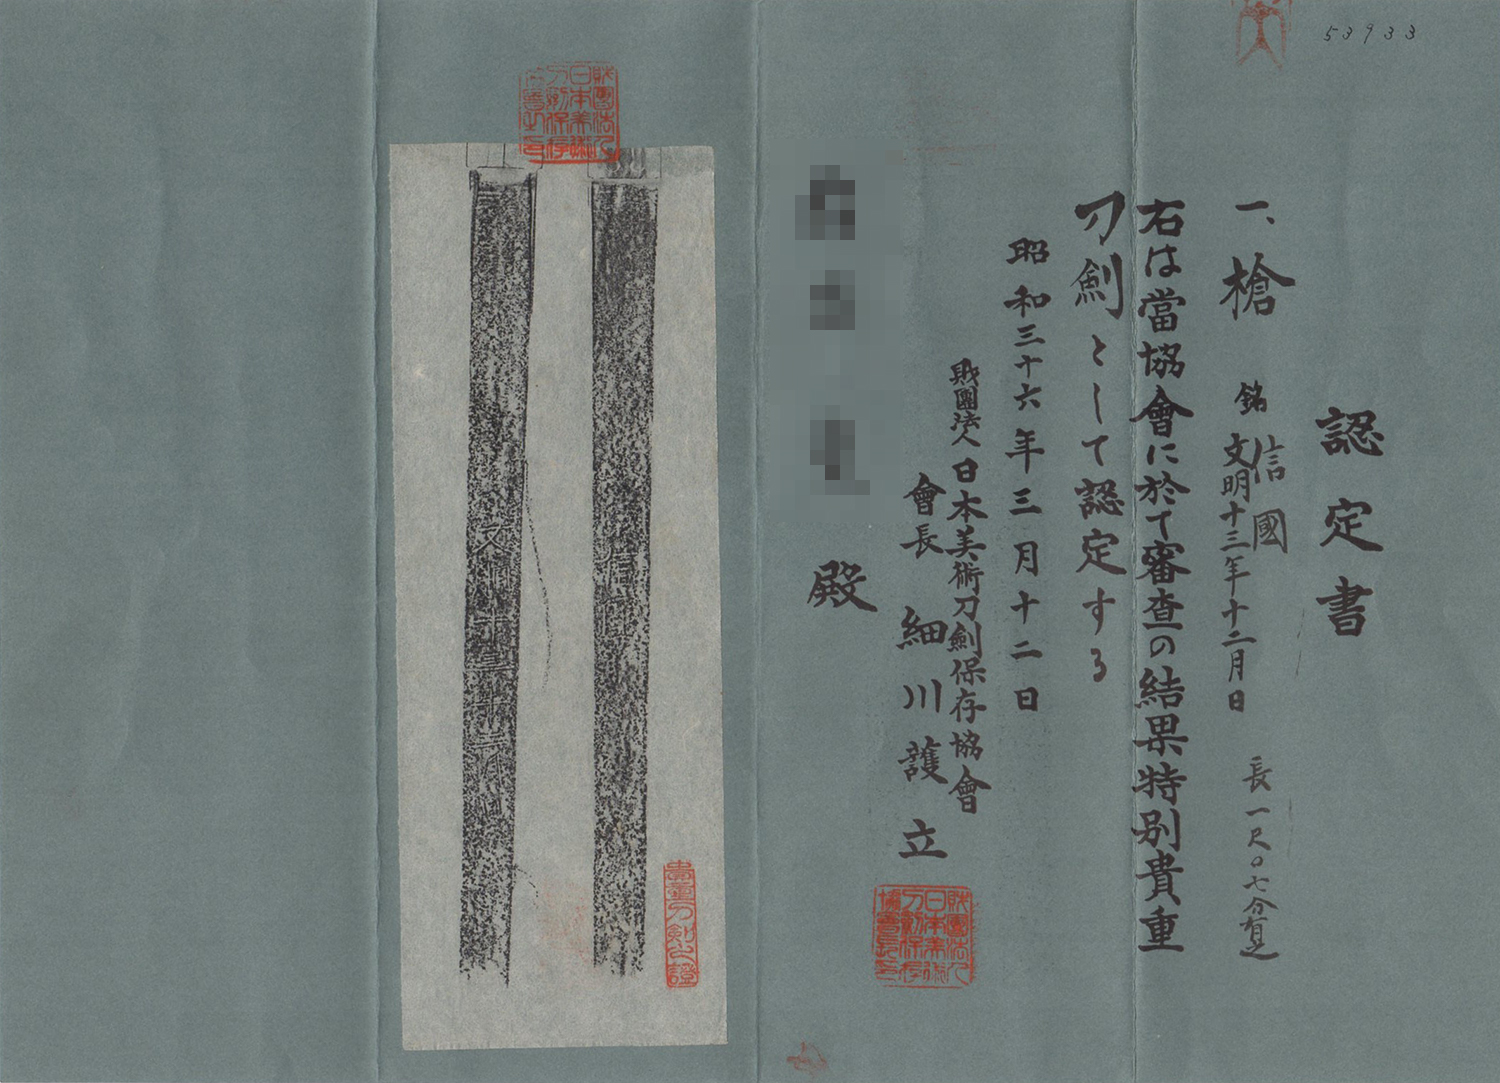 53933
認定書
一、槍 銘 信國
文明十三年十二月日
長一尺〇七分有之
右は當協會に於て審査の結果特別貴重
刀劍として認定する
昭和三十六年三月十二日
財團法人 日本美術刀劍保存協會
會長 細川護立
殿
財團法人日本美術刀劍保存
貴重刀劍之證
信國
文明十三年十二月日